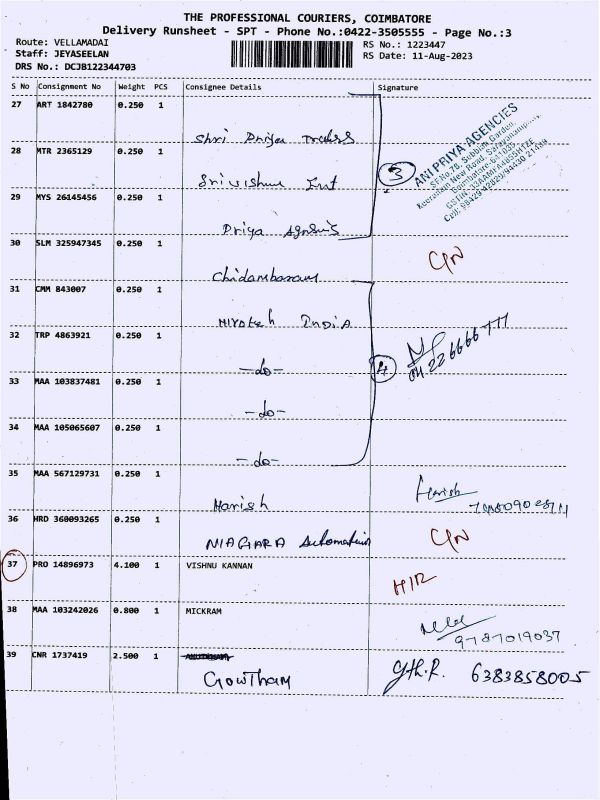 THE PROFESSIONAL COURIERS, COIMBATORE
Delivery Runsheet - SPT - Phone No.:0422-3505555 - Page No.:3
Route: VELLAMADAI
Staff: JEYASEELAN
DRS No.: DCJB122344703
RS No.: 1223447
RS Date: 11-Aug-2023
S No Consignment No Weight PCS Consignee Details Signature
27 ART 1842780 0.250 1
Shri Priya
ANI PRIYA AGENCIES
28 MTR 2365129 0.250 1
3
29 MYS 26145456 0.250 1
Priya
30 SLM 325947345 0.250 1
Chidambaram
31 CMM 843007 0.250 1
India
32 TRP 4863921 0.250 1
-do-
4
04226666777
33 MAA 103837481 0.250 1
-do-
34 MAA 105065607 0.250 1
-do-
35 MAA 567129731 0.250 1
Harish
Harish
36 HRD 360093265 0.250 1
NIAGARA Automation
37 PRO 14896973 4.100 1 VISHNU KANNAN
38 MAA 103242026 0.800 1 MICKRAM
9787019037
39 CNR 1737419 2.500 1
Gowtham
6383858005